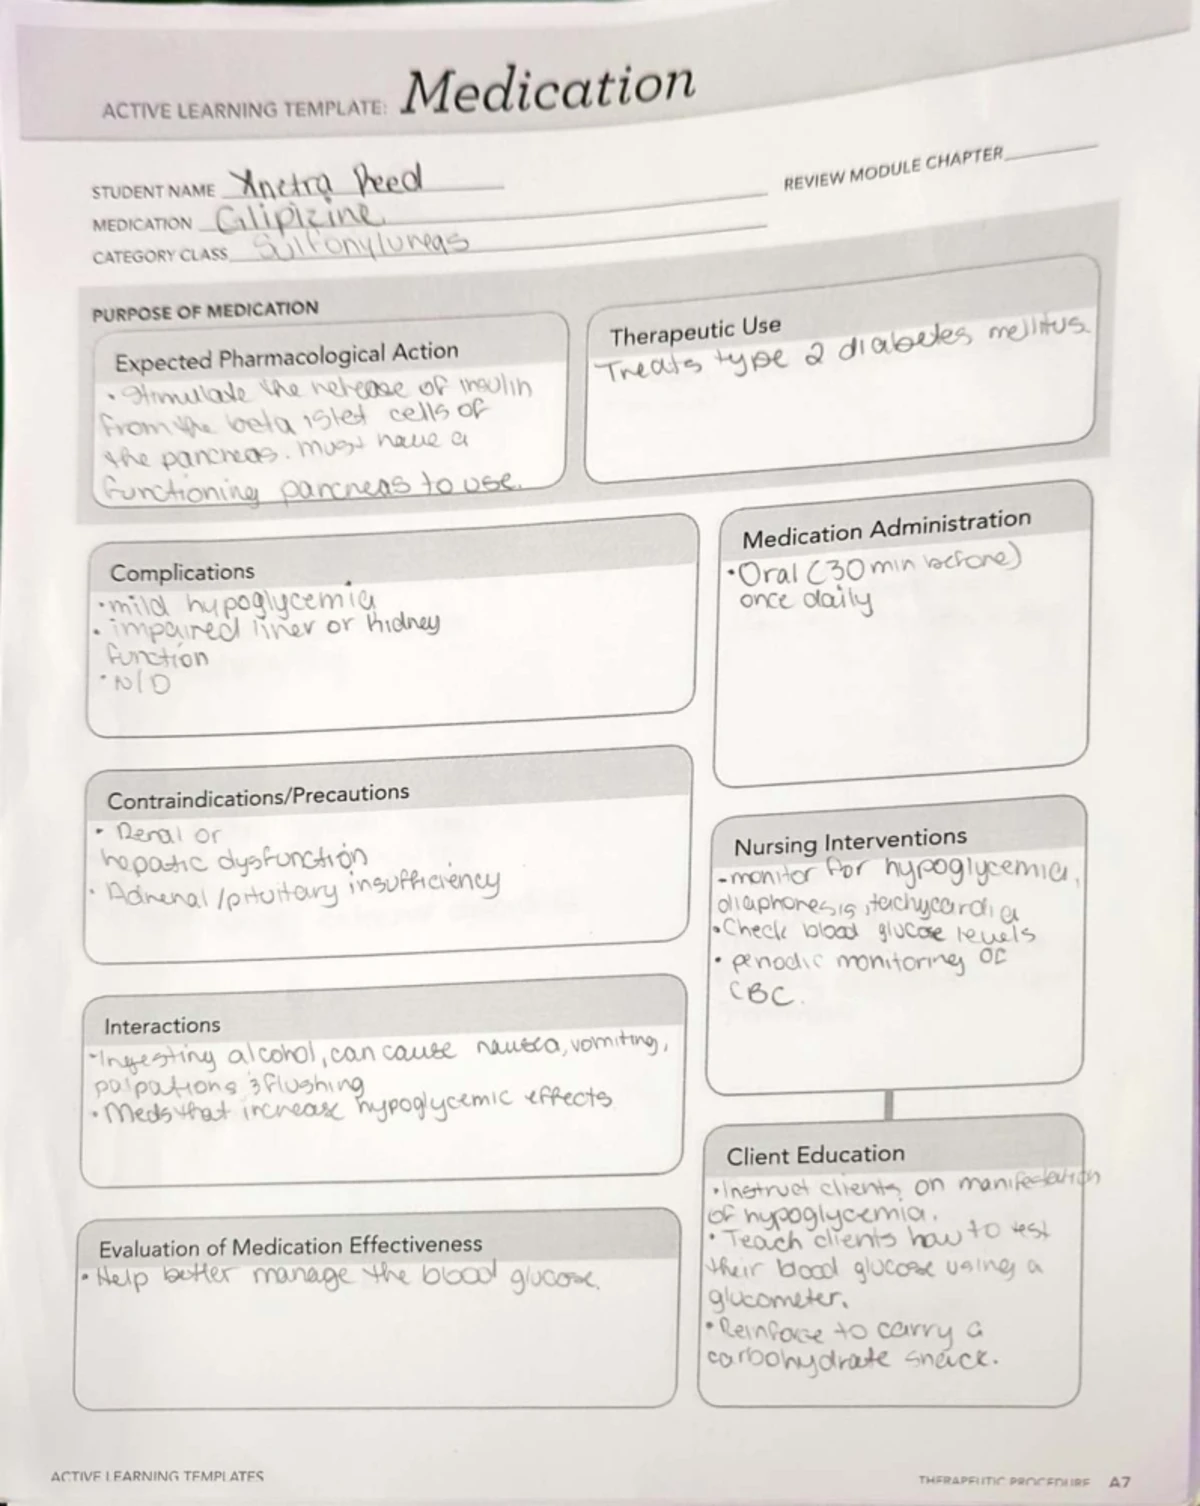 ACTIVE LEARNING TEMPLATE: Medication
STUDENT NAME Xnetra Reed
REVIEW MODULE CHAPTER
MEDICATION Glipizine
CATEGORY CLASS Sulfonylureas
PURPOSE OF MEDICATION
Expected Pharmacological Action
• Stimulate the release of insulin
from the beta islet cells of
the pancreas. must have a
functioning pancreas to use.
Therapeutic Use
Treats type 2 diabetes mellitus.
Complications
• mild hypoglycemia
• impaired liver or kidney
function
• N/D
Medication Administration
• Oral (30 min before)
once daily
Contraindications/Precautions
• Renal or
hepatic dysfunction
• Adrenal/pituitary insufficiency
Nursing Interventions
-monitor for hypoglycemia,
diaphoresis, tachycardia
• Check blood glucose levels
• periodic monitoring of
CBC.
Interactions
• Ingesting alcohol, can cause nausea, vomiting,
palpations & flushing
• Meds that increase hypoglycemic effects
Client Education
• Instruct clients on manifestation
of hypoglycemia.
• Teach clients how to test
their blood glucose using a
glucometer.
• Reinforce to carry a
carbohydrate snack.
Evaluation of Medication Effectiveness
• Help better manage the blood glucose.
ACTIVE LEARNING TEMPLATES
THERAPEUTIC PROCEDURE A7